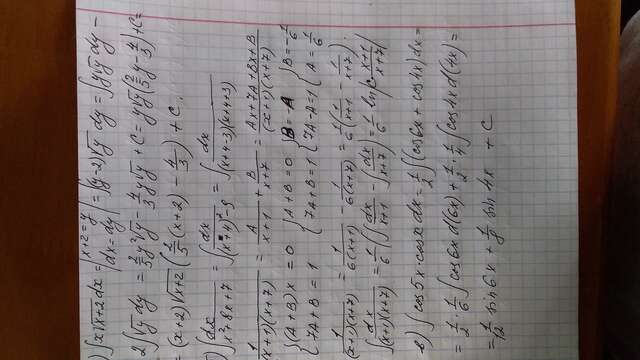 ) ∫x√(x+2) dx = |x+2=y dx=dy| = ∫(y-2)√y dy = ∫y√y dy -
2∫√y dy = 2/5 y²√y - 4/3 y√y + C = y√y(2/5 y - 4/3) + C =
= (x+2)√(x+2) (2/5 (x+2) - 4/3) + C.
) ∫dx/(x²+8x+7) = ∫dx/((x+4)²-9) = ∫dx/((x+4-3)(x+4+3))
1/((x+1)(x+7)) = A/(x+1) + B/(x+7) = (Ax+7A+Bx+B)/((x+1)(x+7))
{(A+B)x = 0 {A+B=0 {B=-A {B=-1/6
{7A+B=1 {7A+B=1 {7A-A=1 {A=1/6
1/((x+1)(x+7)) = 1/(6(x+1)) - 1/(6(x+7)) = 1/6 (1/(x+1) - 1/(x+7)).
∫dx/((x+1)(x+7)) = 1/6 (∫dx/(x+1) - ∫dx/(x+7)) = 1/6 ln|C (x+1)/(x+7)|
в) ∫cos5x cosx dx = 1/2 ∫(cos6x + cos4x) dx =
= 1/2 · 1/6 ∫cos6x d(6x) + 1/2 · 1/4 ∫cos4x d(4x) =
= 1/12 sin6x + 1/8 sin4x + C